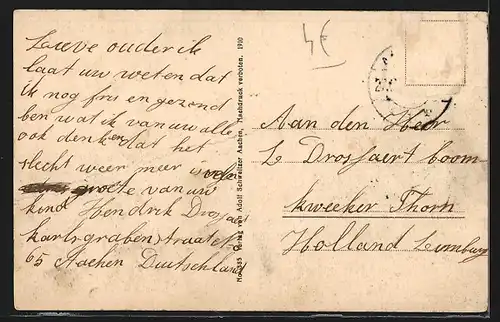 Lieve ouder ik
laat uw weten dat
ik nog fris en gezond
ben wat ik van uw alle
ook denken dat het
slecht weer meer is veln
groete van uw
kind Hendrik Drossaer
karlsgraben straat
65 Aachen Duitschland
No. 385 Verlag von Adolf Schweitzer Aachen, Nachdruck verboten. 1910
4E
Aan den Heer
L Drossaert boom
kweeker Thorn
Holland Limburg